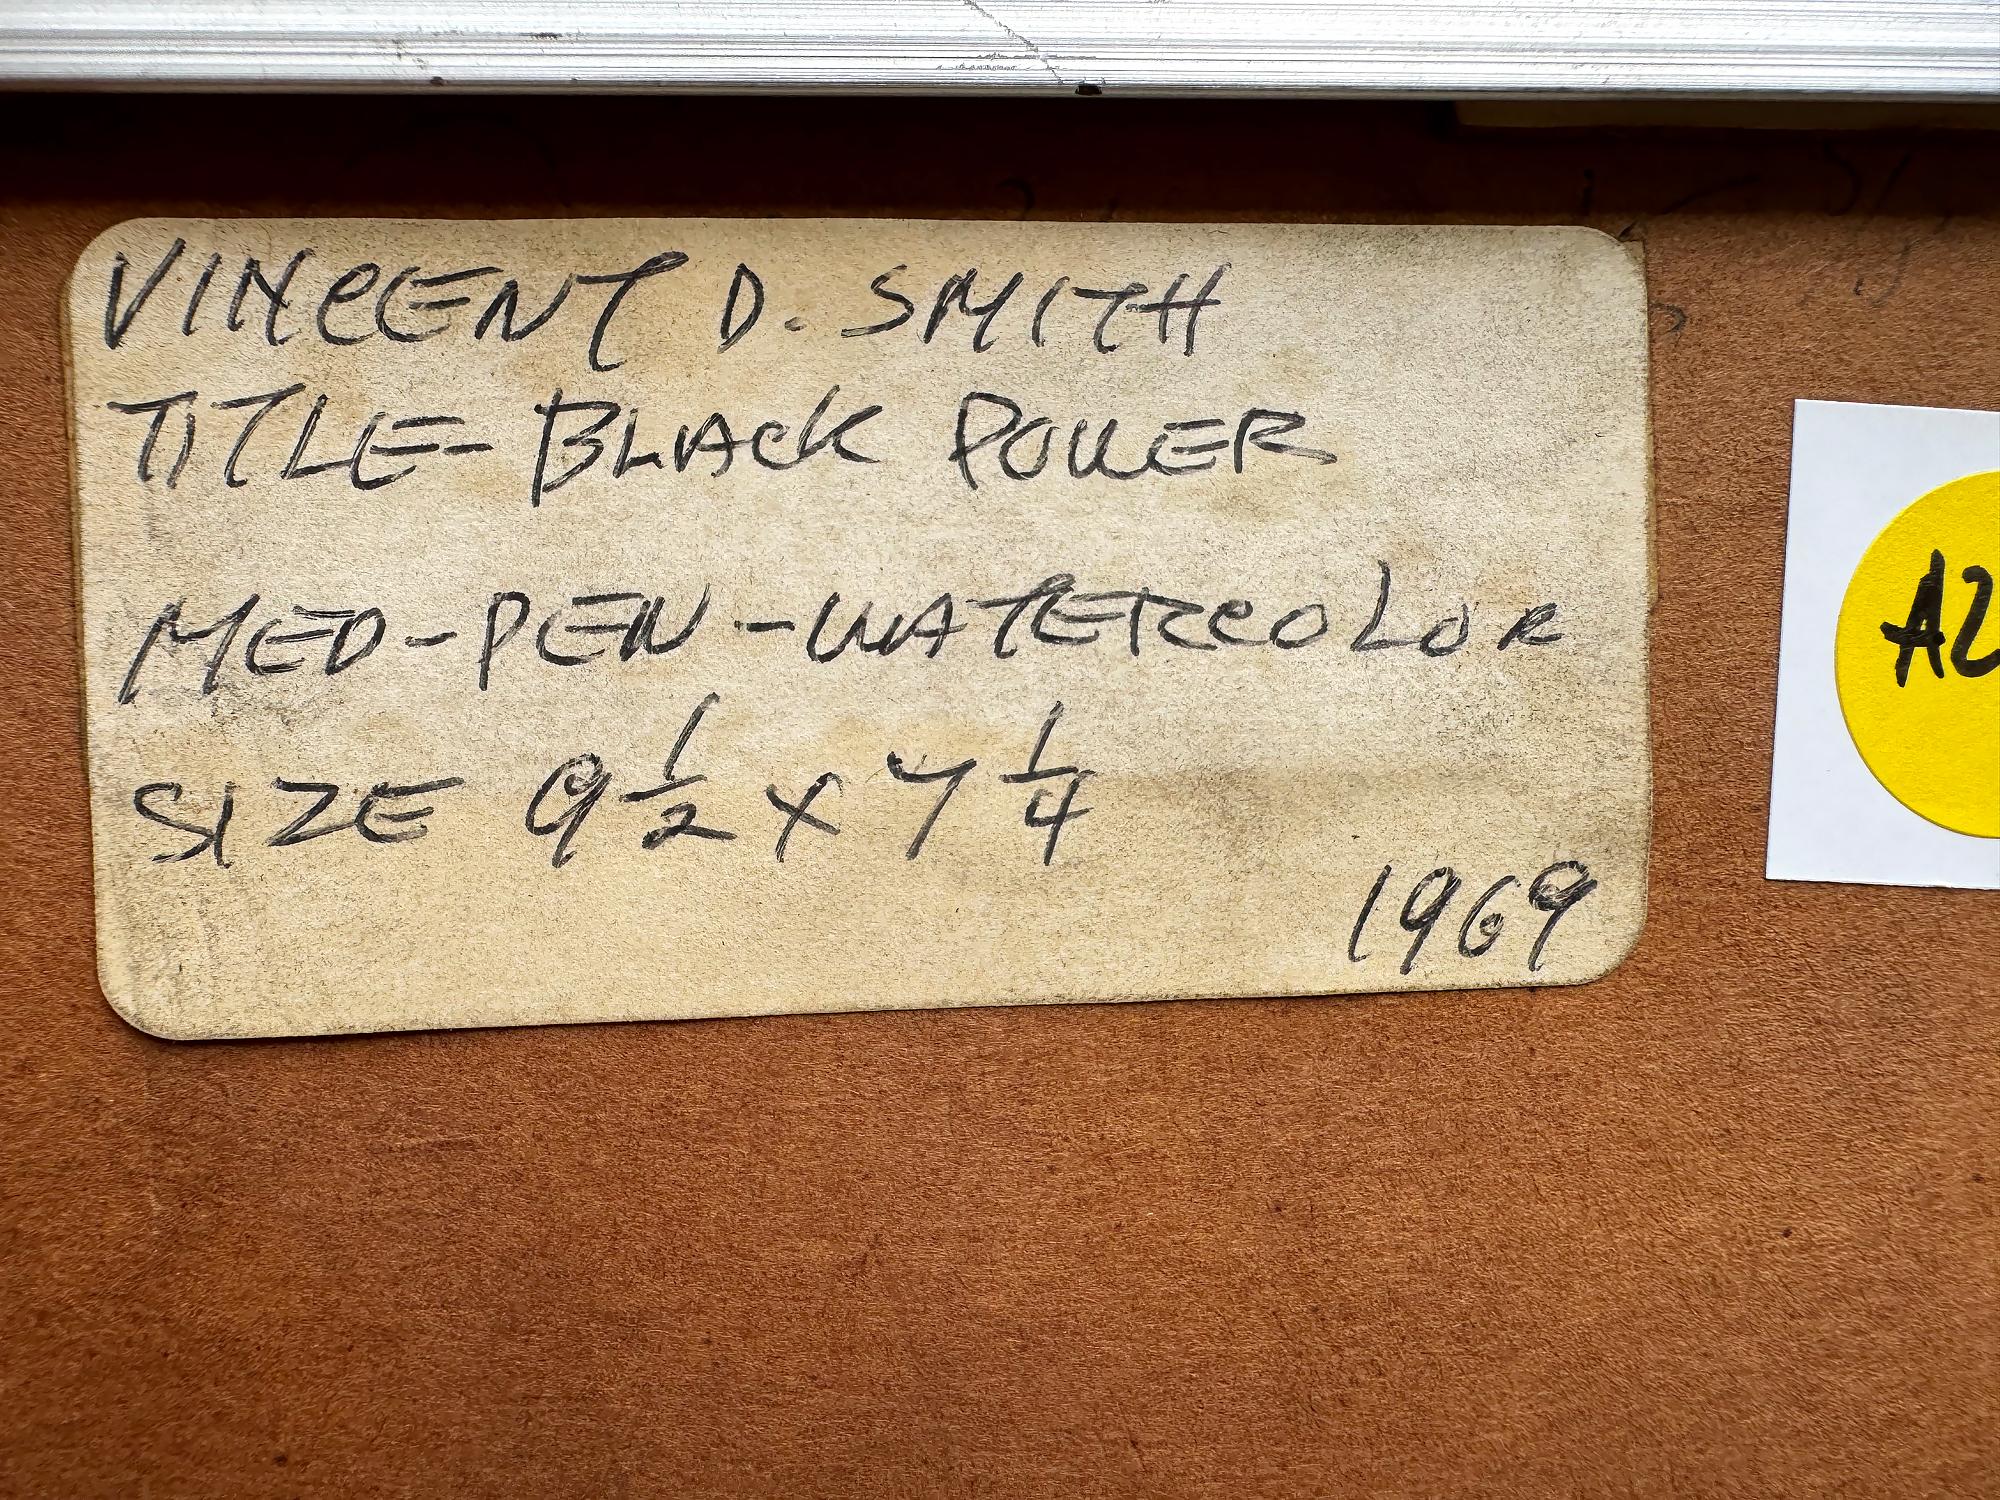 VINCENT D. SMITH
TITLE-BLACK POWER
MED-PEN-WATERCOLOR
SIZE 9 1/2 x 7 1/4
1969
A2